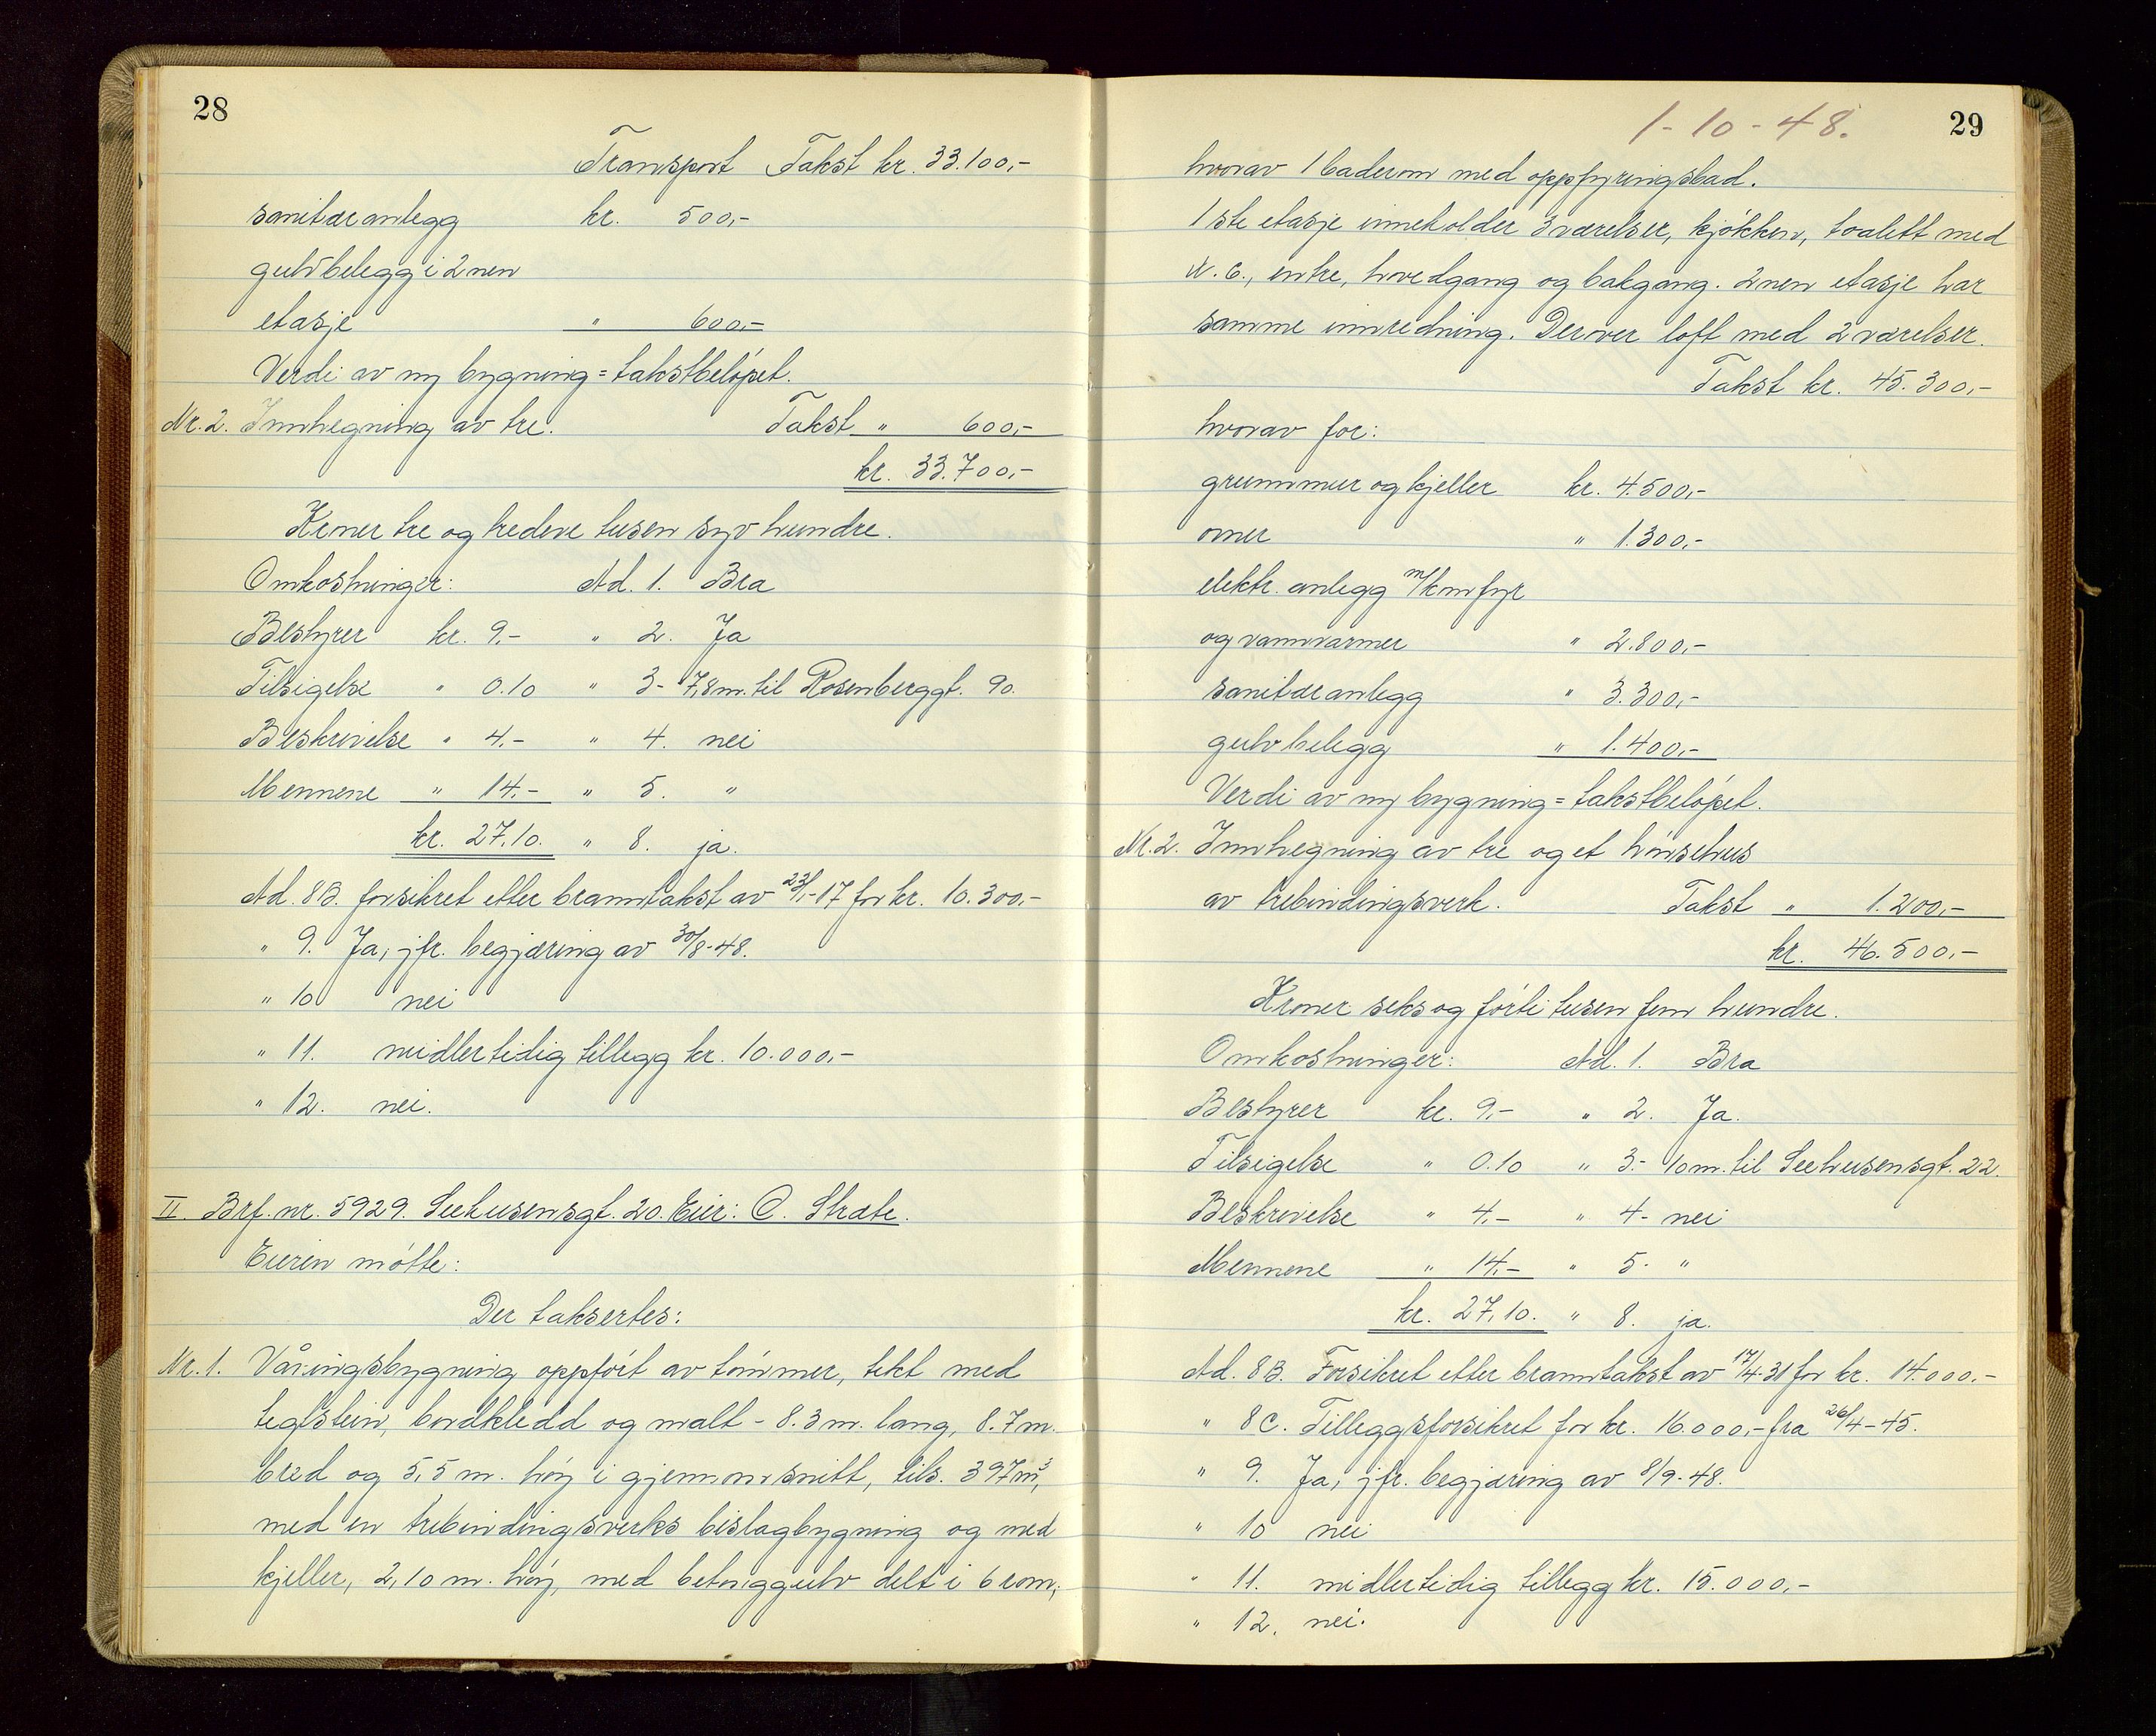 28
Transport Takst kr. 33.100,-
sanitæranlegg kr. 500,-
gulvbelegg i 2nen
etasje " 600,-
Verdi av ny bygning = takstbeløpet.
Nr. 2. Innhegning av tre. Takst " 600,-
kr. 33.700,-
Kroner tre og tredeve tusen syv hundre.
Omkostninger: Ad. 1. Bra
Bestyrer kr. 9,- " 2. Ja
Tilsigelse " 0.10 " 3- 7,8 m. til Rosenberggt. 90.
Beskrivelse " 4.- " 4. nei
Mennene " 14.- " 5. "
kr. 27.10. " 8. ja.
Ad. 8B. forsikret etter branntakst av 23/1-17 for kr. 10.300,-
" 9. Ja, jfr. begjæring av 30/8-48.
" 10 nei
" 11. midlertidig tillegg kr. 10.000,-
" 12. nei.
II. Brf. nr. 5929. Seehusensgt. 20. Eier: O. Stræte.
Eieren møtte:
Der taksertes:
Nr. 1. Våningsbygning oppført av tømmer, tekt med
teglstein, bordkledd og malt - 8.3 m. lang, 8.7 m.
bred og 5,5 m. høy i gjennomsnitt, tils. 397 m³,
med en trebindingsverks bislagbygning og med
kjeller, 2,10 m. høy, med betonggulv delt i 6 rom,
1-10-48. 29
hvorav 1 baderom med oppfyringsbad.
1ste etasje inneholder 3 værelser, kjøkken, toalett med
W.C., entre, hovedgang og bakgang. 2nen etasje har
samme innredning. Derover loft med 2 værelser.
Takst kr. 45.300,-
hvorav for:
grunnmur og kjeller kr. 4.500,-
ovner " 1.300,-
elektr. anlegg m/komfyr
og vannvarmer " 2.800,-
sanitæranlegg " 3.300,-
gulvbelegg " 1.400,-
Verdi av ny bygning = takstbeløpet.
Nr. 2. Innhegning av tre og et hønsehus
av trebindingsverk. Takst " 1.200,-
kr. 46.500,-
Kroner seks og førti tusen fem hundre.
Omkostninger: Ad. 1. Bra
Bestyrer kr. 9,- " 2. Ja.
Tilsigelse " 0.10 " 3.- 10 m. til Seehusensgt. 22.
Beskrivelse " 4.- " 4- nei
Mennene " 14.- " 5. "
kr. 27,10. " 8. ja.
Ad. 8B. Forsikret etter branntakst av 17/4-31 for kr. 14.000.-
" 8C. Tilleggsforsikret for kr. 16.000,- fra 26/4-45.
" 9. Ja, jfr. begjæring av 8/9-48.
" 10 nei
" 11. midlertidig tillegg kr. 15.000,-
" 12. nei.